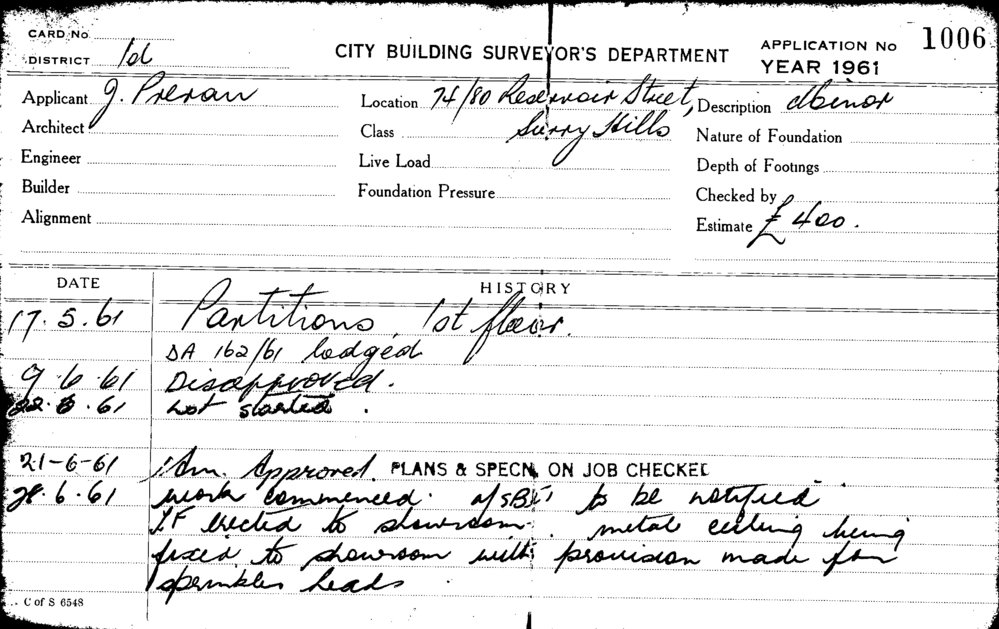 CARD No
DISTRICT 1d
CITY BUILDING SURVEYOR'S DEPARTMENT
APPLICATION No 1006
YEAR 1961
Applicant J. Preran Location 74/80 Reservoir Street, Description Minor
Architect Class Surry Hills Nature of Foundation
Engineer Live Load Depth of Footings
Builder Foundation Pressure Checked by
Alignment Estimate £400.
DATE HISTORY
17.5.61 Partitions, 1st floor.
DA 162/61 lodged
9.6.61 Disapproved.
22.6.61 not started.
21-6-61 Am. Approved. PLANS & SPECN. ON JOB CHECKED
28.6.61 work commenced. to be notified
I.F. erected to showroom. metal ceiling being
fixed to showroom with provision made for
sprinkler heads
C of S 6548